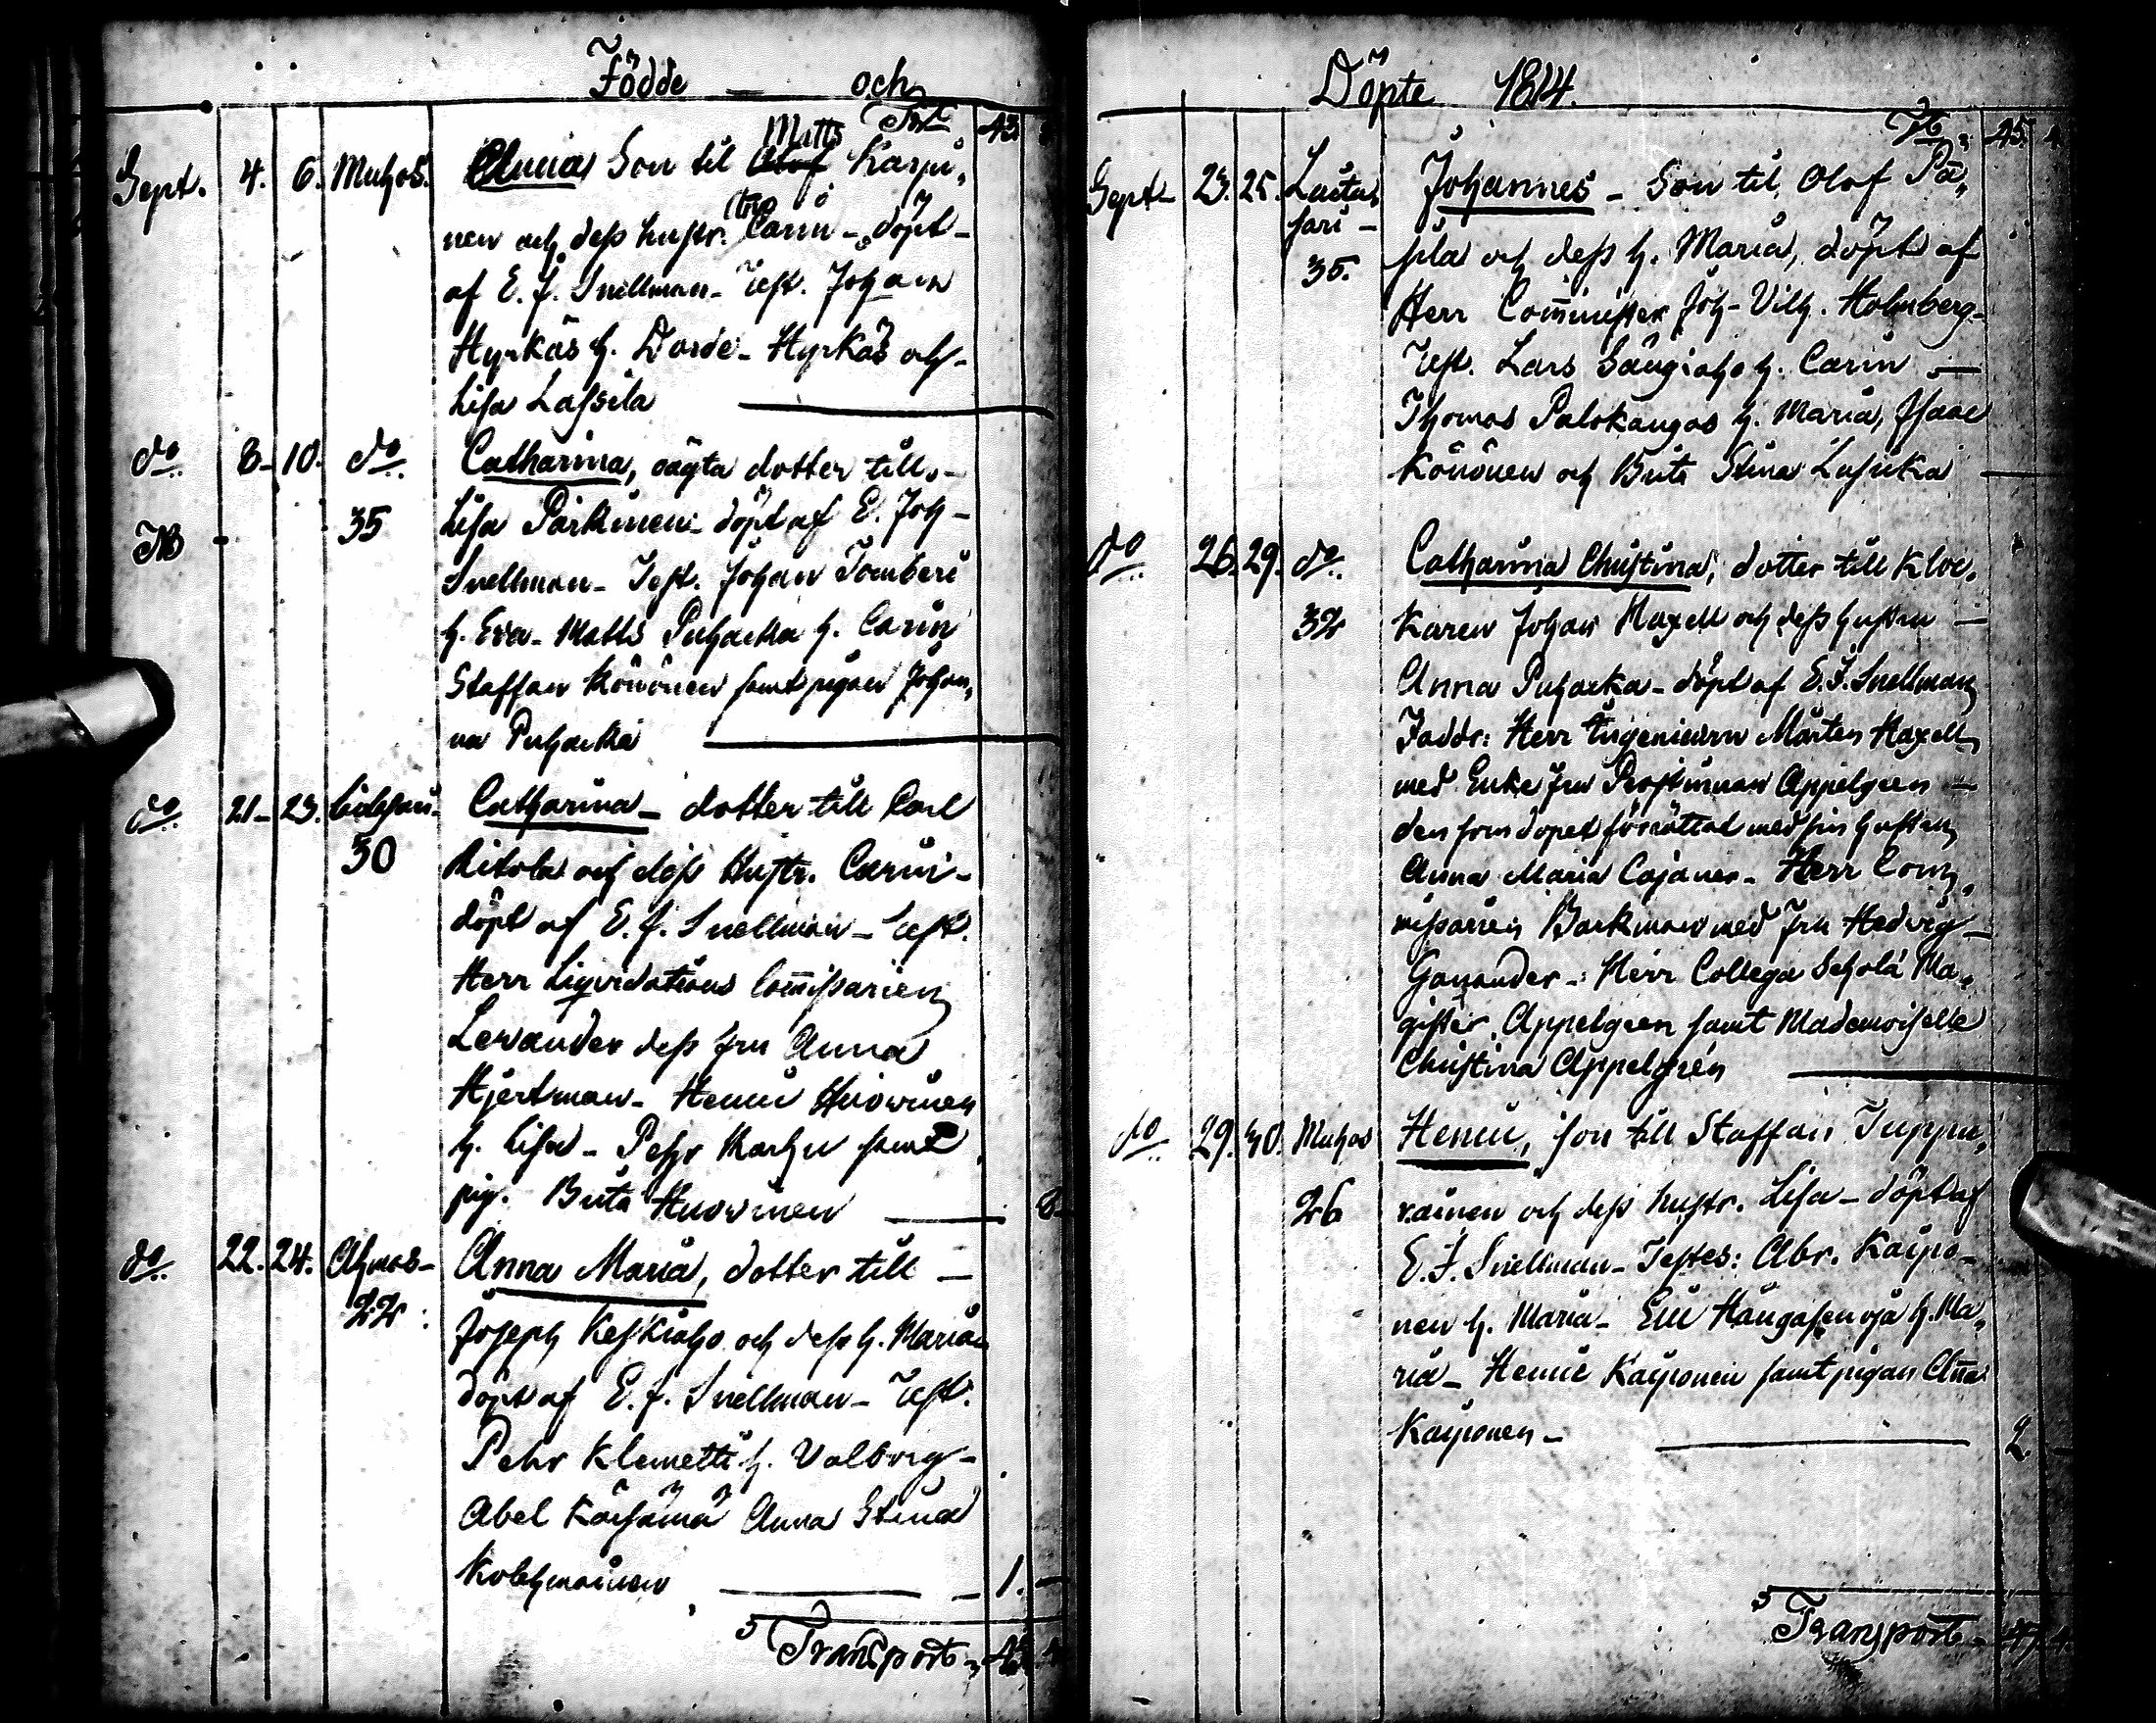 Födde — och
Trt 43
Sept. 4. 6. Muhos. Anna Son til Olof Matts Karju,
nen och dess hustr. Carin - döpt -
af E. J. Snellman - Test. Johan
Hyrkäs h. Darde - Hyrkäs och -
Lisa Lassila
do 8 - 10. do Catharina, oägta dotter till -
NB 35 Lisa Pärkinen - döpt af E. Joh -
Snellman - Test. Johan Tomberi
h. Eva - Matts Puhacka h. Carin
Staffan Könönen samt pigan Johan,
na Puhacka
do 21 - 23. Catharina - dotter till Carl
30 Ritola och dess Hustr. Carin -
döpt af E. J. Snellman - Test.
Herr Liqvidations Commissarien
Levander dess fru Anna
Hjertman - Henric Huovinen
h. Lisa - Pehr Karhu samt
pig. Brita Huovinen — 8
do 22. 24. Ahmas - Anna Maria, dotter till —
22 Joseph Keskiaho och dess h. Maria
döpt af E. J. Snellman - Test.
Pehr Klemetti h. Valborg -
Abel Kärsämä Anna Stina
Kolehmainen — 1.
Transport
Döpte 1814.
Trt 45.
Sept 23. 25. Johannes - Son til Olof Pä,
sari -
35. pilä och dess h. Maria, döpt af
Herr Comminister Joh - Vilh. Holmberg -
Test. Lars Sängiaho h. Carin —
Thomas Palokangas h. Maria, Isaac
Könönen och Brita Stina
do 26. 29. do Catharina Christina, dotter till Kloc,
32 karen Johan Haxell och dess hustru —
Anna Puhacka - döpt af E. J. Snellman
Faddr: Herr Ingenieurn Mårten Haxell
med Enke fru Prostinnan Appelgren —
den som dopet förrättat med sin hustru
Anna Maria Cajaner - Herr Com,
missarien Barkman med Fru Hedvig -
Ganander -: Herr Collega Scholä Ma,
gister Appelgren samt Mademoiselle
Christina Appelgren
do 29. 30. Muhos Henric, son till Staffan Tuppu,
26 rainen och dess hustr. Lisa - döpt af
E. J. Snellman - Testes: Abr. Kaipo -
nen h. Maria - Eric Hangasenoja h. Ma,
ria - Henric Kaiponen samt pigan Anna
Kaiponen - 2
Transport